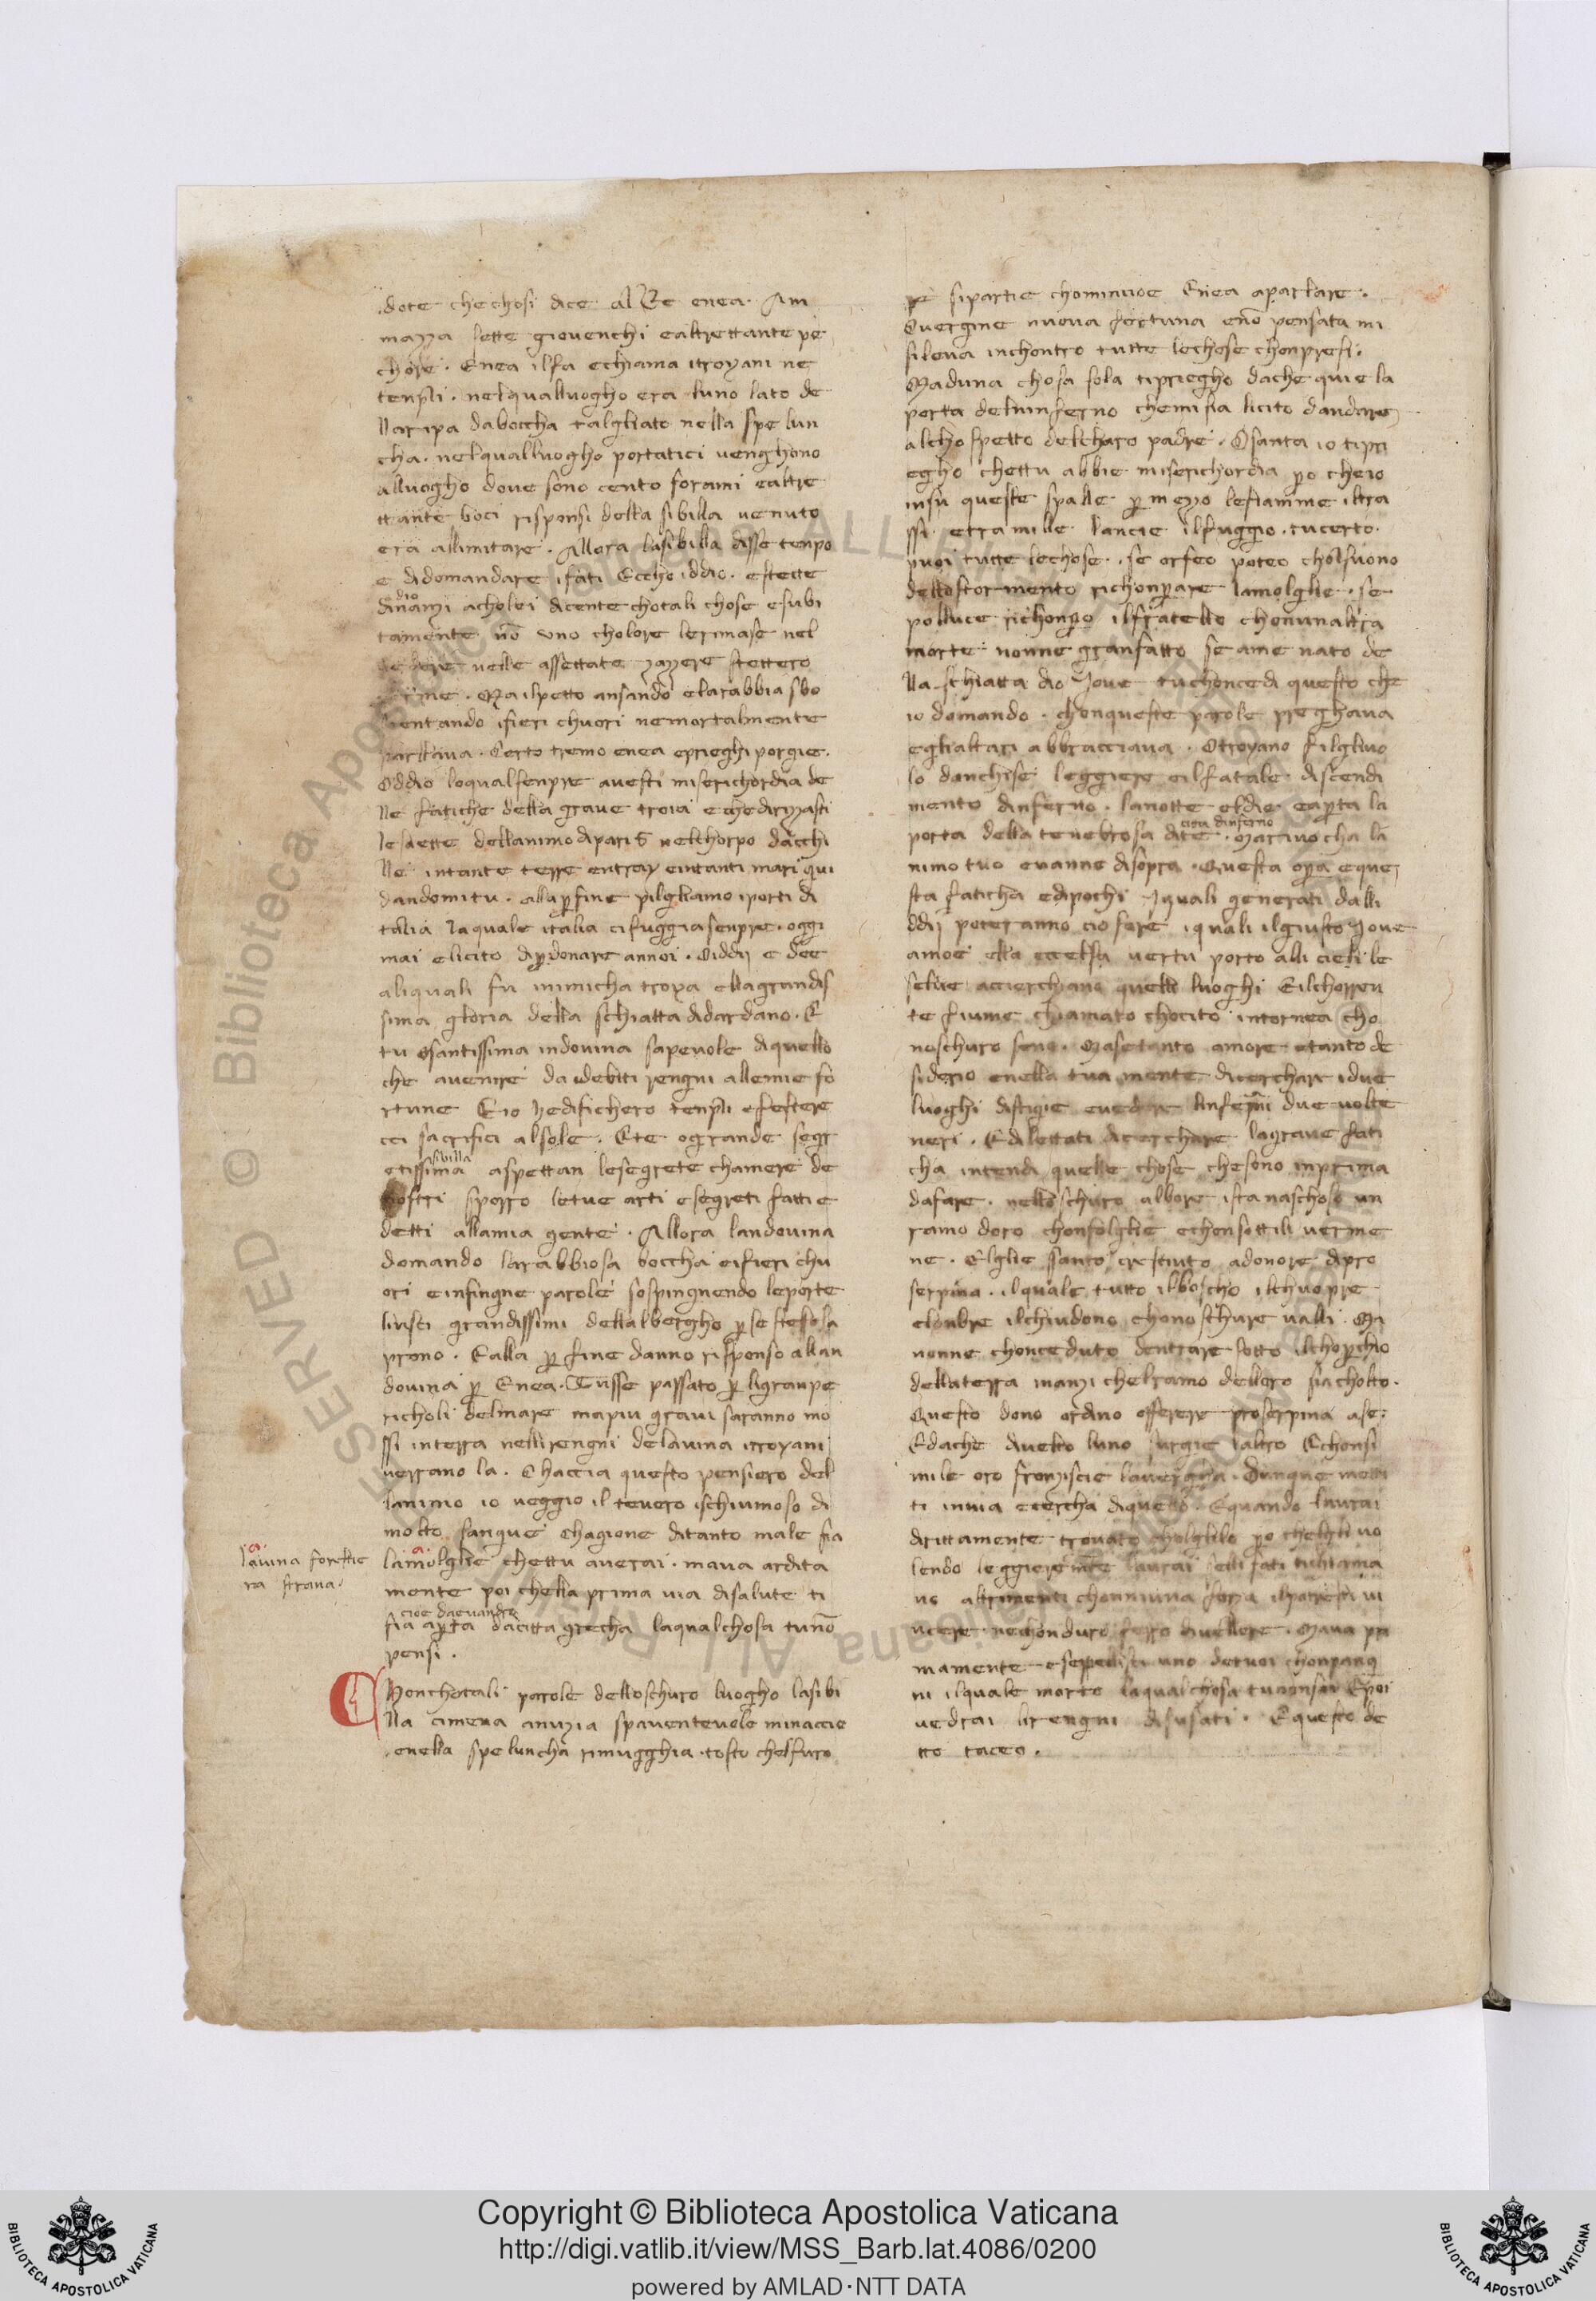 dote che chosi dice al Re enea. Am
mazza sette giovenchi e altrettante pe
chore. Enea il fa e chiama i troyani ne
templi. nel qual luogho era luno lato de
lla ripa da boccha talgliato nella spelun
cha. nel qual luogho portatici venghono
alluogho dove sono cento forami e altre
ttante boci risponsi della sibilla venuto
era allimitare. Allora la sibilla disse tenpo
e di domandare i fati Eccho iddio. e stette
dio
dinanzi a cholei dicente chotali chose e subi
tamente nō uno cholore le rimase nel
nelle assettate zazzere stettero
Ma il petto ansando e la rabbia sbo
entando i fieri chuori ne mortalmente
parllava. Certo tremo enea e prieghi porgie.
O ddio lo qual senpre avesti miserichordia de
lle fatiche della grave troia e che dirizzasti
le saette dellanimo di paris nel chorpo dacchi
lle in tante terre entray e in tanti mari gui
dandomi tu. alla p fine pilgliamo i porti di
talia la quale italia ci fuggia senpre. oggi
mai e licito di pdonare annoi. O iddij e dee
a li quali fu inimicha troya e lla grandis
sima gloria della schiatta di dardano. E
tu o santissima indovina sapevole di quello
che avenire da i debiti rengni alle mie fo
rtune E io hedifichero templi e festere
cci sacrifici al sole. E te o grande segr
sibilla
etissima aspettan le segrete chamere de
nostri sporro le tue arti e segreti fatti e
detti alla mia gente. Allora landovina
domando la rabbiosa boccha e i fieri chu
ori e infingne parole sospingnendo le porte
li usci grandissimi dellalbergho p se stesso la
prono. E alla p fine danno risponso allan
dovina p Enea. Tu sse passato p li gran pe
richoli del mare ma piu gravi saranno mo
ssi in terra nelli rengni de lavina i troyani
verrano la. Chaccia questo pensiero del
lanimo io veggio il tevero ischiumoso di
molto sangue Chagione di tanto male fia
a
la molglie chettu averai. ma va ardita
mente poi chella prima via di salute ti
cioe da evandro
fia apta da citta grecha la qual chosa tu nō
pensi.
a
lavina forestie
ra strana
Con chotali parole dello schuro luogho la sibi
lla cimera anuzia spaventevole minaccie
e nella speluncha rimugghia. tosto chel furo
re si partie chominuoe Enea a parlare.
O vergine nuova fortuna e nō pensata mi
si leva inchontro tutte le chose chonpresi.
Ma duna chosa sola ti priegho da che qui e la
porta delunferno che mi sia licito dandare
al chospetto del charo padre. O santa io ti pri
egho chettu abbie miserichordia po che io
in su queste spalle p mezo le fiamme il tra
ssi e tra mille lancie il fuggio. tu certo
puoi tutte le chose. se orfeo poteo chol suono
dello stormento richonparare la molglie. se
polluce richonpo il fratello chon unaltra
morte nonne gran fatto se a me nato de
lla schiatta dio Jove tu choncedi questo che
io domando. chon queste parole preghava
e gli altari abbracciava. O troyano filgliuo
lo danchise leggiere e il fatale discendi
mento dinferno. la notte el die e apta la
citta dinferno
porta della tenebrosa dite. Ma rivocha la
nimo tuo e vanne di sopra. Questa opa e que
sta faticha e di pochi I quali generati dalli
ddij poteranno cio fare i quali il giusto Jove
amoe e lla eccelsa vertu porto alli cieli le
selve accierchiano quello luoghi E il chorren
te fiume chiamato chocito intornea cho
noschuro seno. Ma se tanto amore e tanto de
siderio e nella tua mente di cerchare i due
luoghi di stigie e vedere linferni due volte
neri. E dilettati di cerchare la grave fati
cha intendi quelle chose che sono in prima
da fare. nello schuro albore ista naschoso un
ramo doro chon folglie e chon sottili verme
ne. Elglie santo cresciuto ad onore di pro
serpina. il quale tutto il boscho il chuopre
e lonbre il chiudono chon oschure valli. Ma
nonne chonceduto dentrare sotto il chopchio
della terra inanzi chel ramo dell oro sia cholto.
Questo dono ordino offerere proserpina a se.
E da che divelto luno surgie laltro E chon si
mile oro fronziscie la vergha. Dunque metti
ti in via e cercha di quello. E quando lavrai
dirittamente trovato cholglilo po chelgli vo
lendo leggieremēte lavrai se lli fati ti chiama
no altrimenti chon niuna forza il potresti vi
ncere ne chon duro ferro divellere. Ma va pri
mamente e seppellisci uno de tuoi chonpangi
ni il quale morto la qual chosa tu non sai E poi
vedrai li rengni disusati. E questo de
tto taceo.
Copyright © Biblioteca Apostolica Vaticana
http://digi.vatlib.it/view/MSS_Barb.lat.4086/0200
powered by AMLAD·NTT DATA
BIBLIOTECA APOSTOLICA VATICANA
BIBLIOTECA APOSTOLICA VATICANA